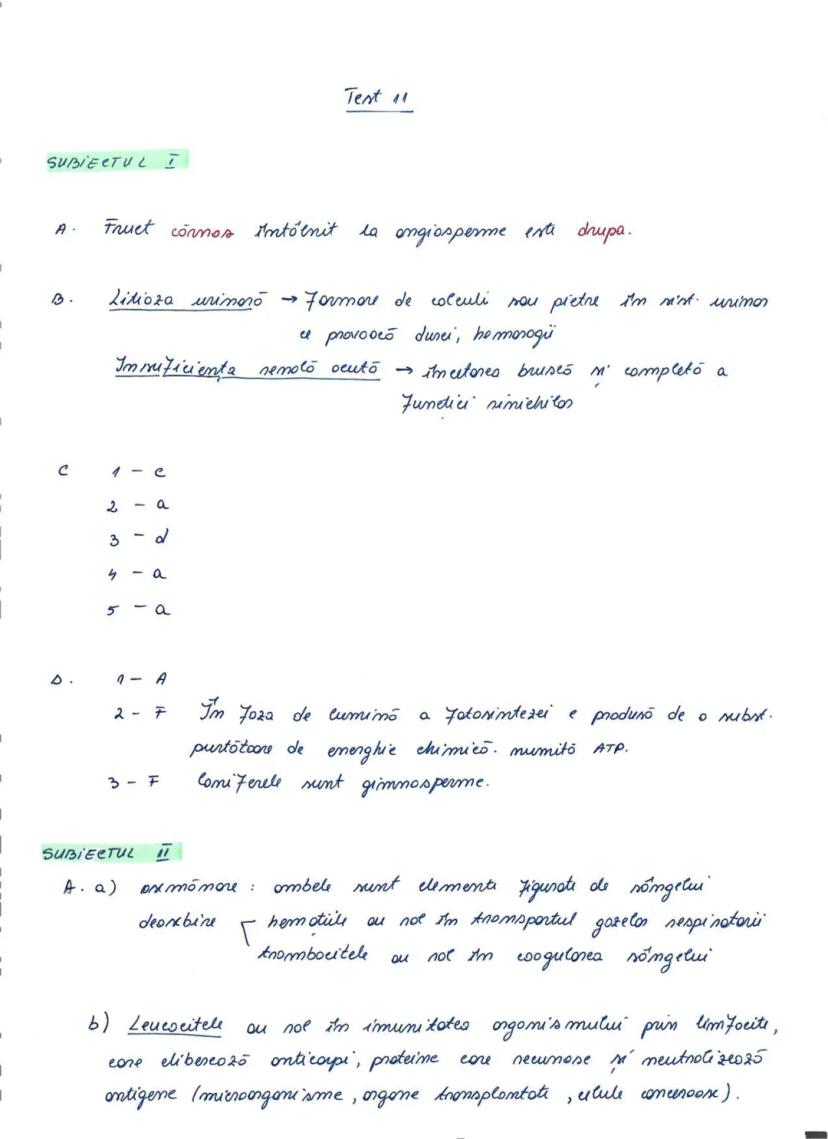 Test 11
SUBIECTUL I
A. Fruct cărnos întâlnit la angiosperme este drupa.
B. Litioza urinară → Formare de calculi sau pietre în sist. urinar
ce provoacă dureri, hemoragii
Insuficiența renală acută → încetarea bruscă și completă a
funcției rinichilor
C 1 - c
2 - a
3 - d
4 - a
5 - a
D. 1 - A
2 - F În faza de lumină a fotosintezei e produsă de o subst.
purtătoare de energhie chimică. numită ATP.
3 - F Coniferele sunt gimnosperme.
SUBIECTUL II
A. a) asemănare : ambele sunt elemente figurate ale sângelui
deosebire hematiile au rol în transportul gazelor respiratorii
trombocitele au rol în coagularea sângelui
b) Leucocitele au rol în imunitatea organismului prin limfocite,
care eliberează anticorpi, proteine care recunosc și neutralizează
antigene (microorganisme, organe transplantate, celule canceroase).